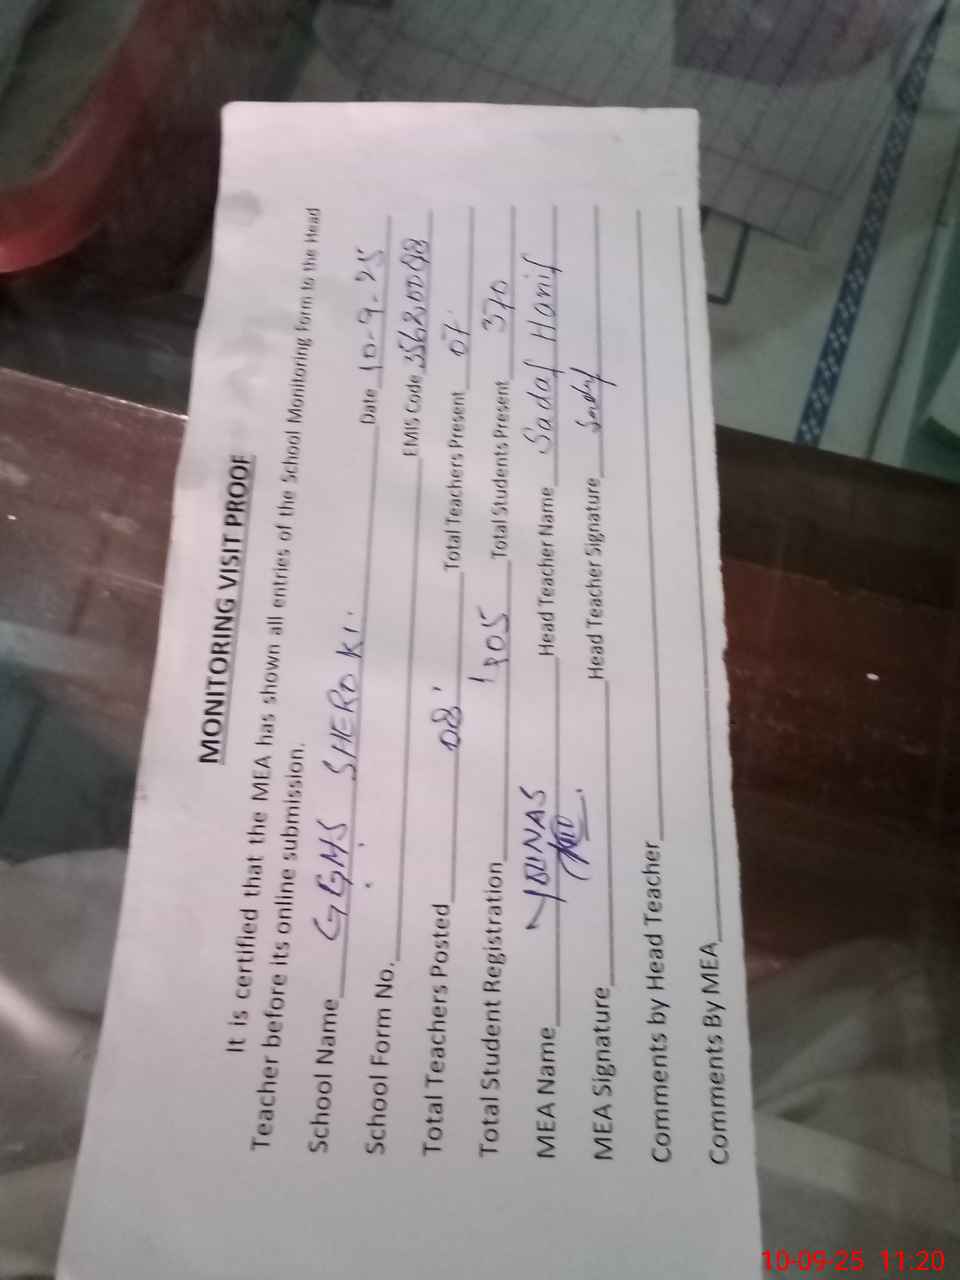 MONITORING VISIT PROOF
It is certified that the MEA has shown all entries of the School Monitoring Form to the Head
Teacher before its online submission.
School Name GGMS SHEROKI. Date 10-9-25
School Form No. EMIS Code
Total Teachers Posted 08 Total Teachers Present 07
Total Student Registration Total Students Present 370
MEA Name YOUNAS Head Teacher Name Sadaf Hanif
MEA Signature Head Teacher Signature Sadaf
Comments by Head Teacher
Comments By MEA
10-09-25 11:20